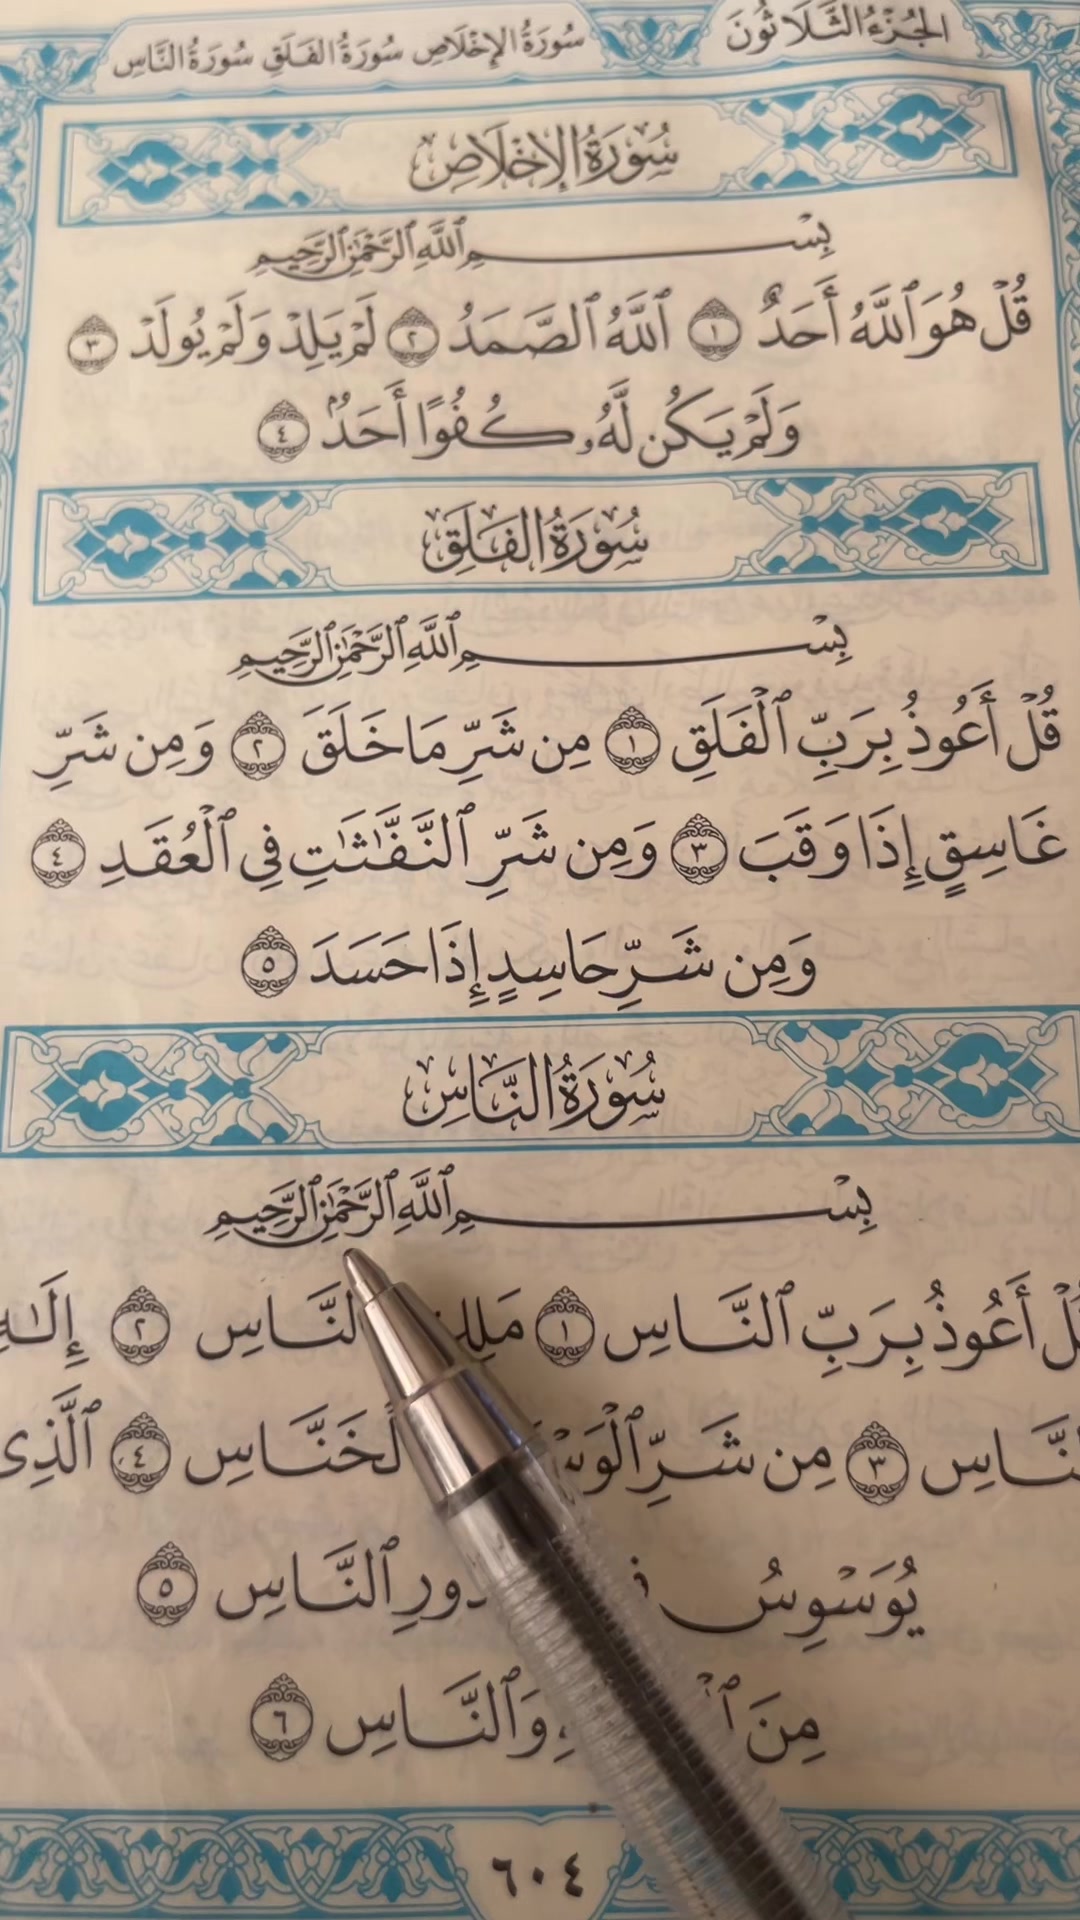 الجُزْءُ الثَّلَاثُونَ سُورَةُ الإِخْلَاصِ سُورَةُ الفَلَقِ سُورَةُ النَّاسِ
سُورَةُ الإِخْلَاصِ
بِسْمِ ٱللَّهِ ٱلرَّحْمَٰنِ ٱلرَّحِيمِ
قُلْ هُوَ ٱللَّهُ أَحَدٌ ١ ٱللَّهُ ٱلصَّمَدُ ٢ لَمْ يَلِدْ وَلَمْ يُولَدْ ٣
وَلَمْ يَكُن لَّهُۥ كُفُوًا أَحَدٌۢ ٤
سُورَةُ الفَلَقِ
بِسْمِ ٱللَّهِ ٱلرَّحْمَٰنِ ٱلرَّحِيمِ
قُلْ أَعُوذُ بِرَبِّ ٱلْفَلَقِ ١ مِن شَرِّ مَا خَلَقَ ٢ وَمِن شَرِّ
غَاسِقٍ إِذَا وَقَبَ ٣ وَمِن شَرِّ ٱلنَّفَّٰثَٰتِ فِى ٱلْعُقَدِ ٤
وَمِن شَرِّ حَاسِدٍ إِذَا حَسَدَ ٥
سُورَةُ النَّاسِ
بِسْمِ ٱللَّهِ ٱلرَّحْمَٰنِ ٱلرَّحِيمِ
أَعُوذُ بِرَبِّ ٱلنَّاسِ ١ مَلِكِ النَّاسِ ٢ إِلَٰهِ
ٱلنَّاسِ ٣ مِن شَرِّ لْخَنَّاسِ ٤ ٱلَّذِى
يُوَسْوِسُ ٱلنَّاسِ ٥
مِنَ وَٱلنَّاسِ ٦
٦٠٤